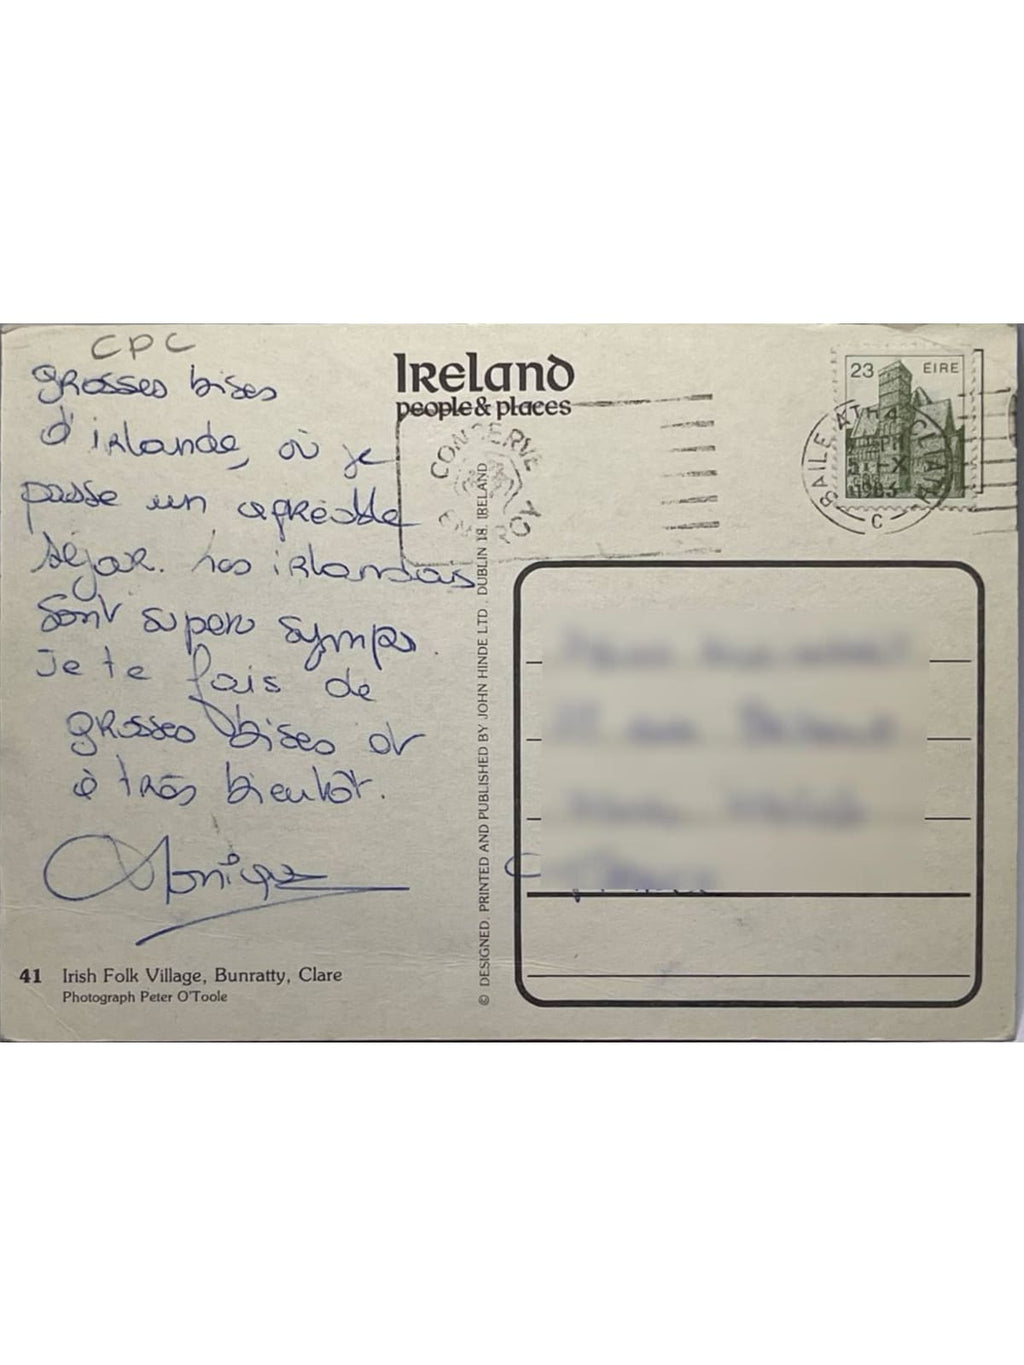 CPC
grosses bises
d'irlande, où je
passe un agréable
séjour. Les irlandais
sont super sympas.
je te fais de
grosses bises et
à très bientôt.
Monique
41 Irish Folk Village, Bunratty, Clare
Photograph Peter O'Toole
Ireland
people & places
CONSERVE
ENERGY
© DESIGNED, PRINTED AND PUBLISHED BY JOHN HINDE LTD., DUBLIN 18, IRELAND
23 EIRE
BAILE ÁTHA CLIATH
C